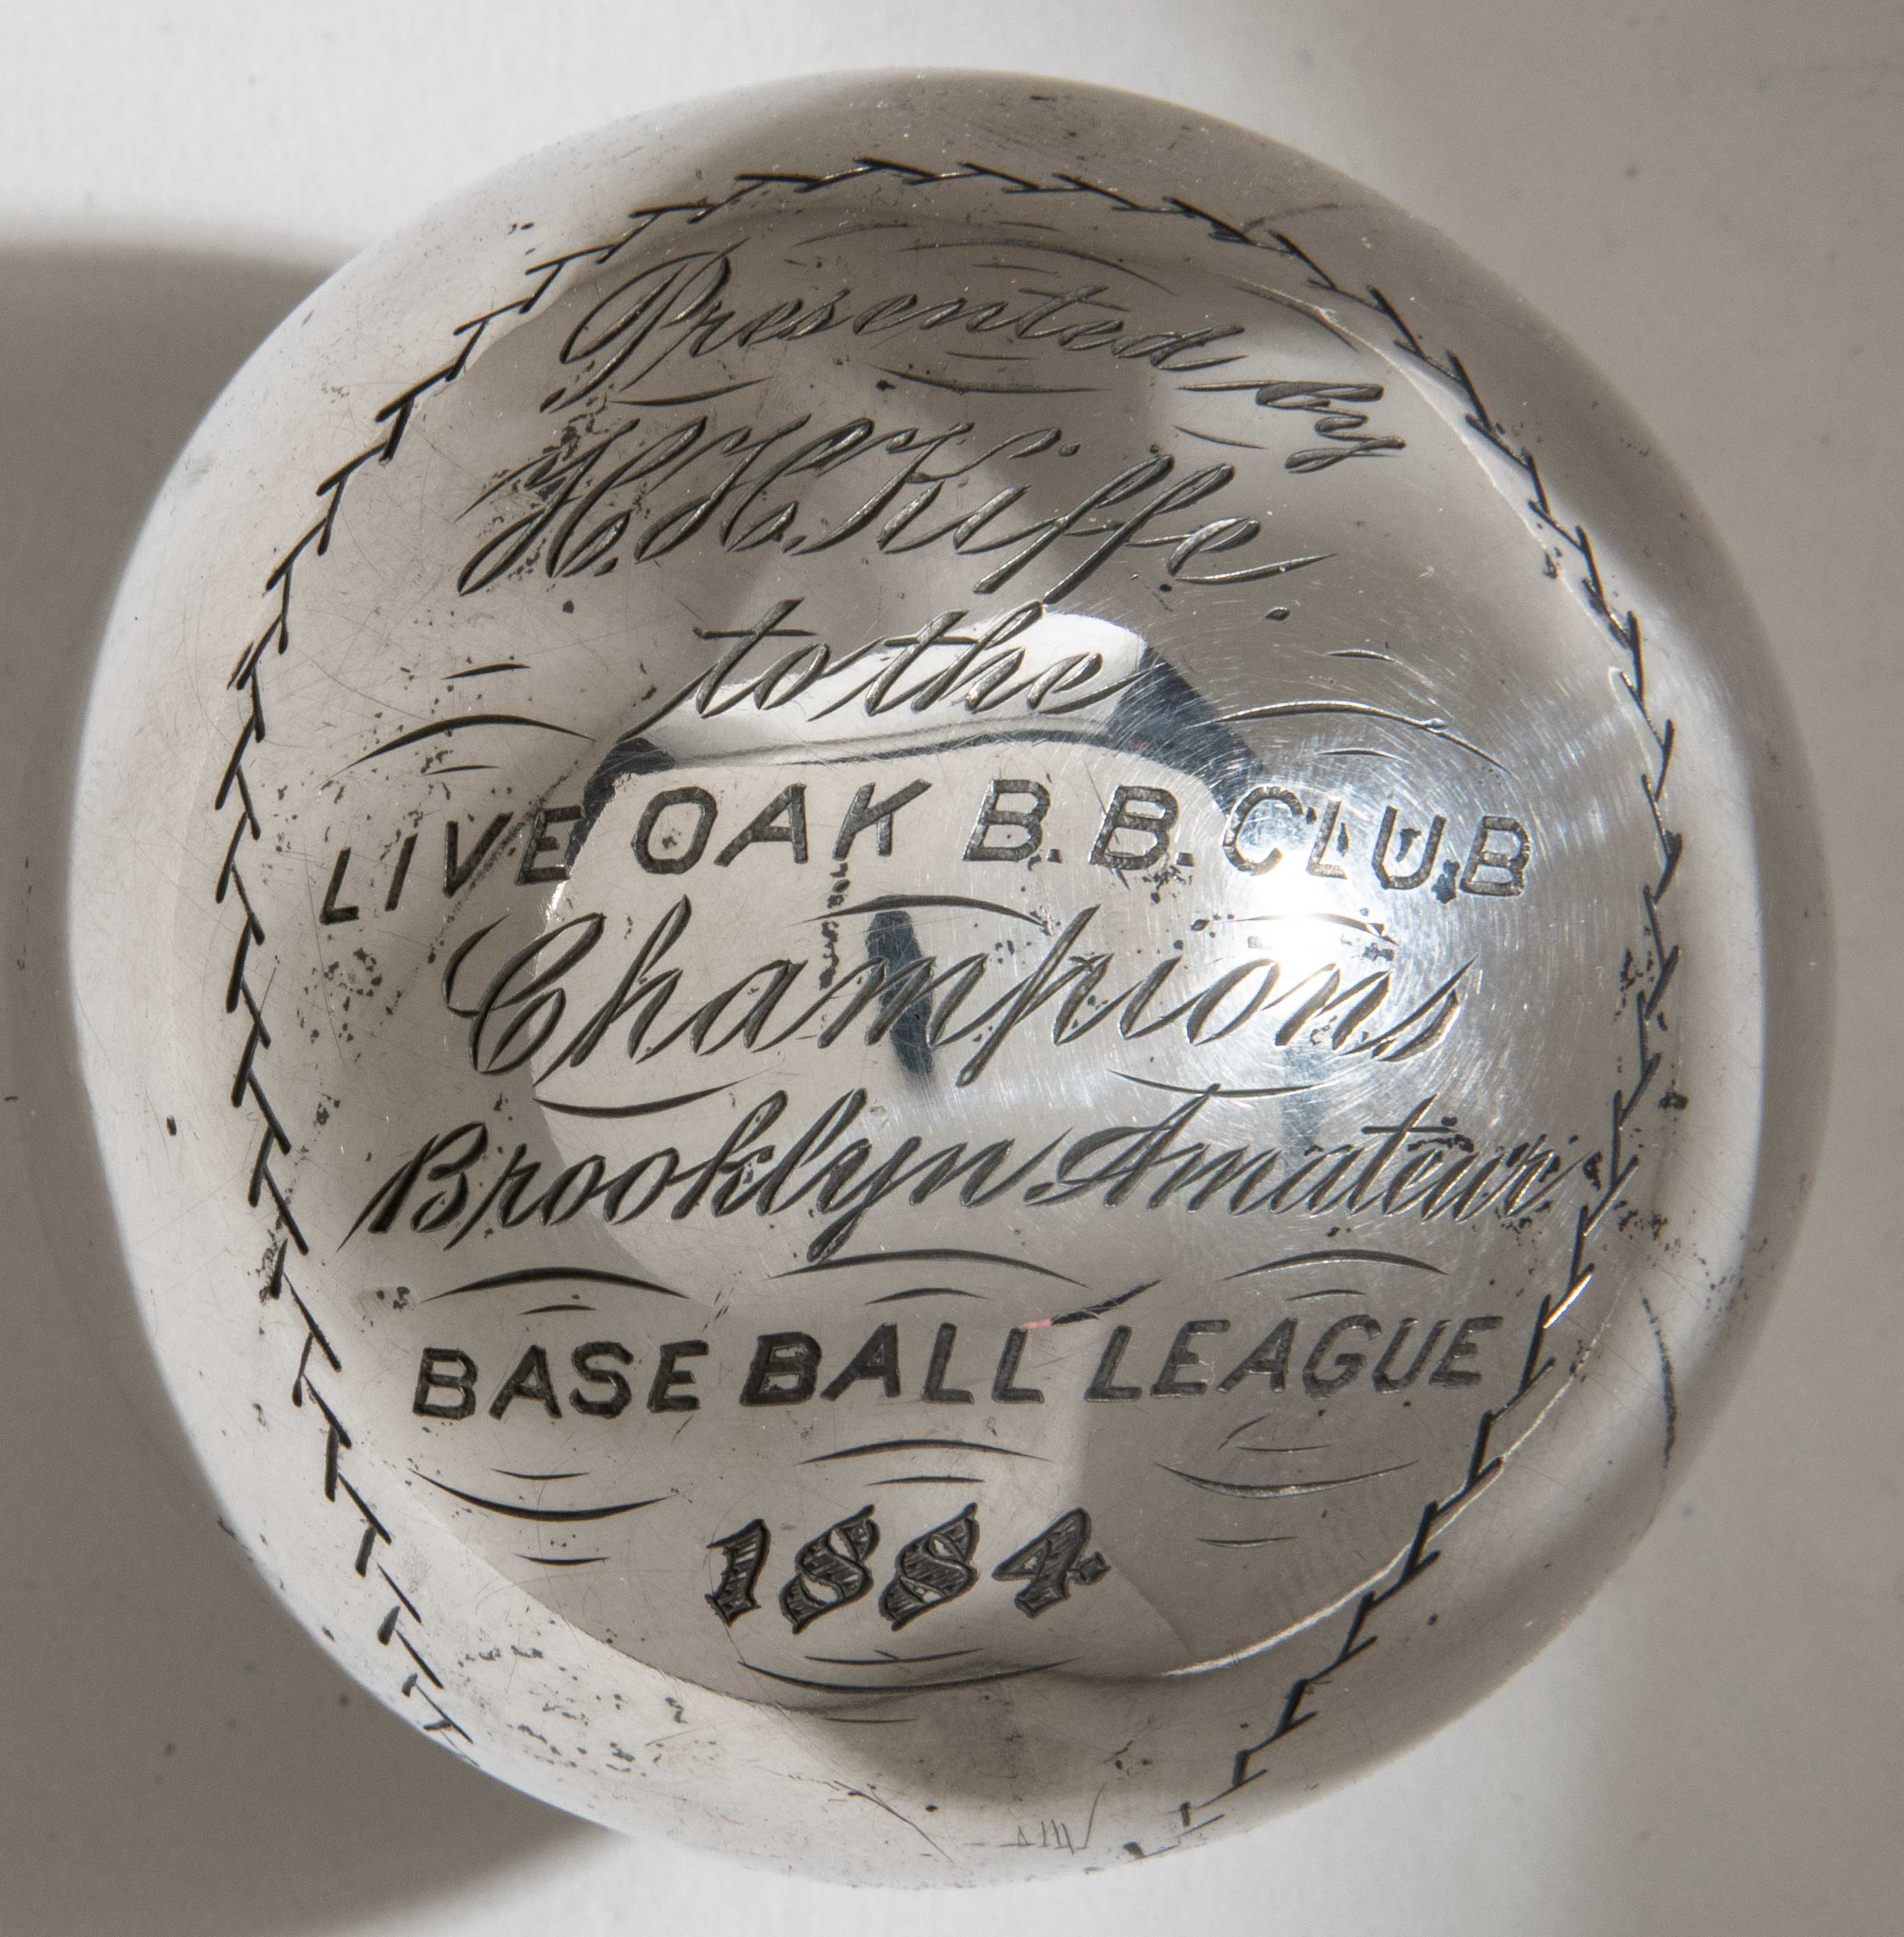 Presented by
H. H. Kiffe
to the
LIVE OAK B.B. CLUB
Champions
Brooklyn Amateur
BASE BALL LEAGUE
1884